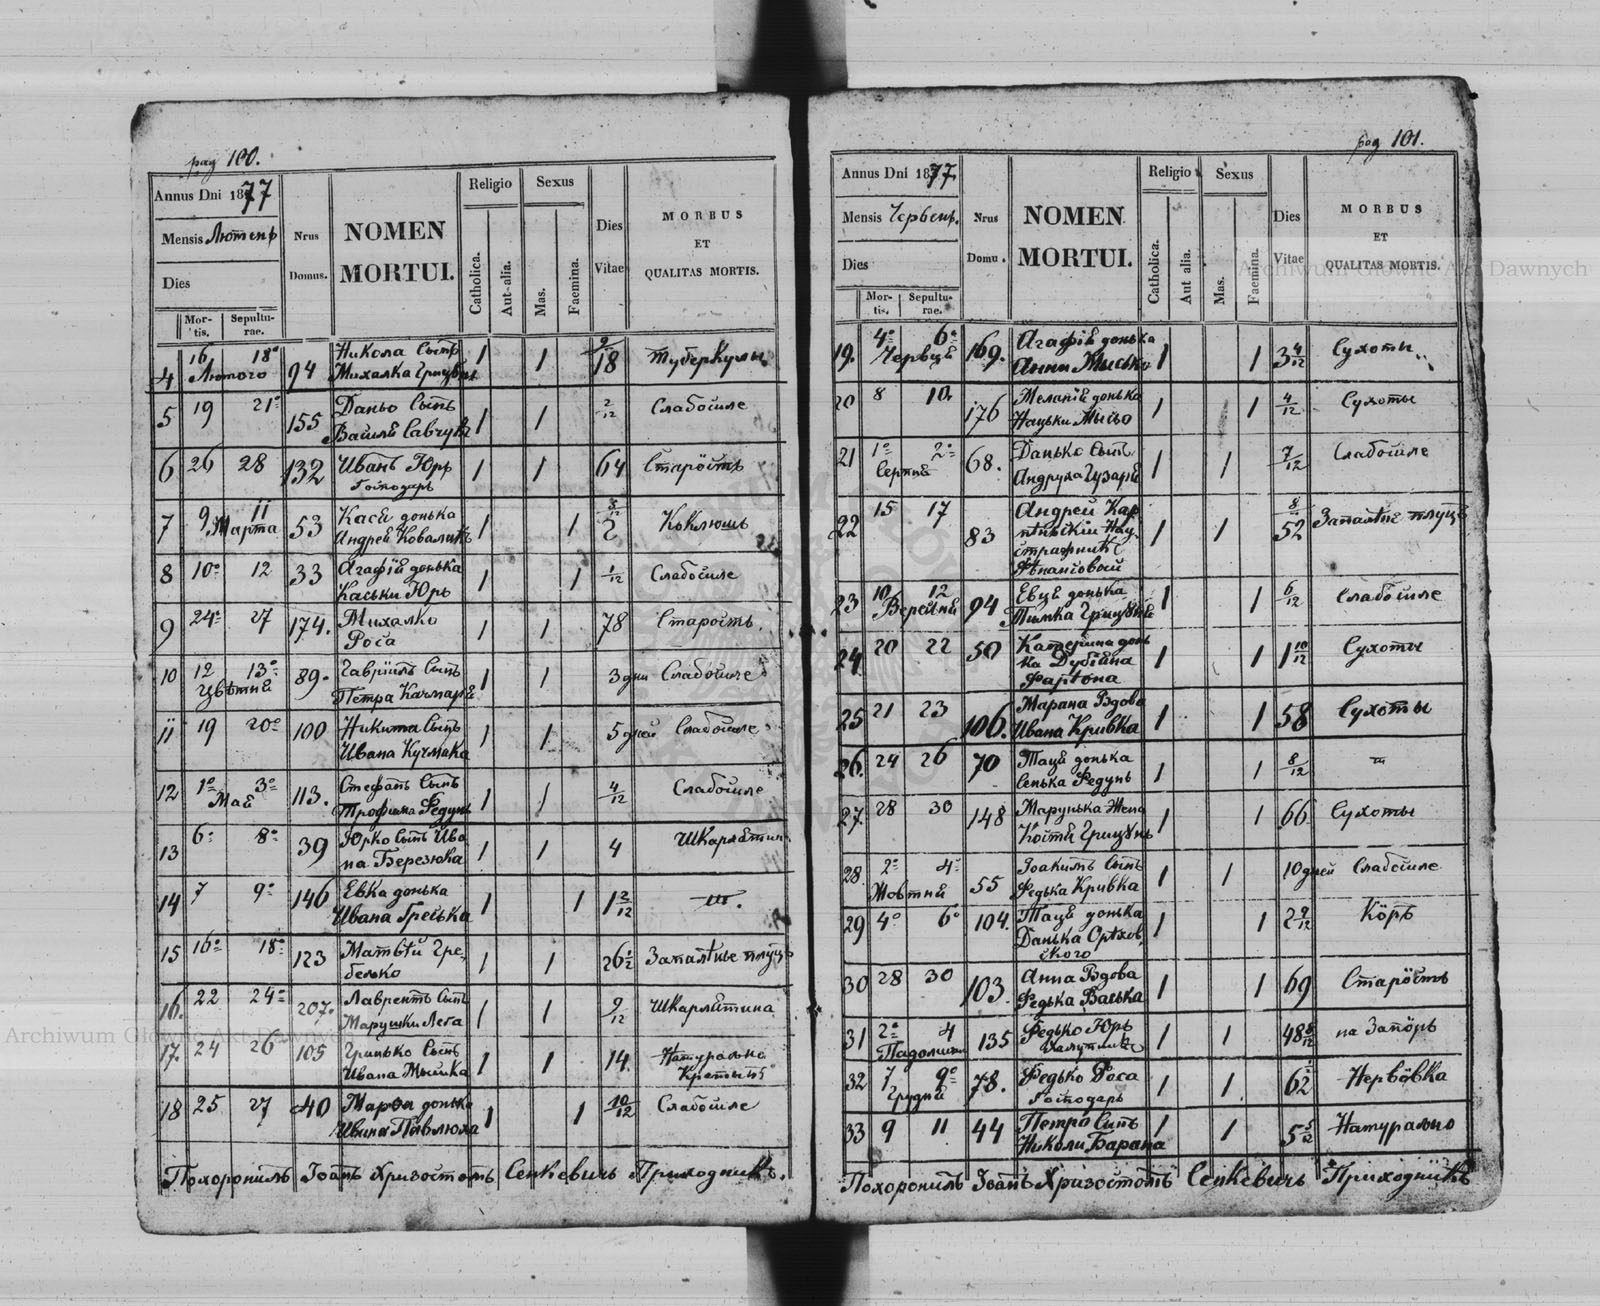 рад 100.
Annus Dni 1877
Mensis Лютень
Dies
Mortis.
Sepulturae.
Nrus Domus.
NOMEN MORTUI.
Religio
Catholica.
Aut alia.
Sexus
Mas.
Faemina.
Dies Vitae
MORBUS
ET
QUALITAS MORTIS.
4 16 18º Лютого 94 Никола Сынъ 1 1 18 Туберкулы
Михалка Грицуня
5 19 21º 155 Даньо Сынъ 1 1 2/12 Слабосиле
Василя Савчукъ
6 26 28 132 Иванъ Юрь 1 1 64 Старость
Господарь
7 9 11 Марта 53 Кася донька 1 1 2 8/12 Коклюшъ
Андрея Ковалика
8 10º 12 33 Агафія донька 1 1 1/12 Слабосиле
Каськи Юрь
9 24º 27 174. Михалко 1 1 78 Старость.
Роса
10 12 13º Цвѣтня 89. Гавріилъ Сынъ 1 1 3 дни Слабосиле
Петра Качмаря
11 19 20º 100 Никита Сынъ 1 1 5 дней Слабосиле
Ивана Кучмака
12 1º 3º Мая 113. Стефанъ Сынъ 1 1 4/12 Слабосиле
Трофима Федунь
13 6º 8º 39 Юрко Сынъ Ива 1 1 4 Шкарлятин
на Березюка
14 7 9º 146 Евка донька 1 1 1 3/12
Ивана Греська
15 16º 18º 123 Матвѣй Гре- 1 1 26 1/2 Запалѣнье плуць
белько
16. 22 24º 207. Лаврентъ Сынъ 1 1 9/12 Шкарлятина
Марушки Лега
17. 24 26 105 Гринько Сынъ 1 1 14. Натурально
Ивана Мыська
18 25 27 40 Марья донька 1 1 10/12 Слабосиле
Ивана Павлюха
Похоронилъ Іоанъ Хризостомъ Сенкевичь Приходникъ.
рад 101.
Annus Dni 1877.
Mensis Червень.
Dies
Mortis.
Sepulturae.
Nrus Domu.
NOMEN MORTUI.
Religio
Catholica.
Aut alia.
Sexus
Mas.
Faemina.
Dies Vitae
MORBUS
ET
QUALITAS MORTIS.
19. 4º 6º Червця 169. Агафія донька 1 1 3 4/12 Сухоты
Анни Мысько
20 8 10. 176 Меланія донька 1 1 4/12 Сухоты
Нацьки Мысьо
21 1º 2º Серпня 68. Данько Сынъ 1 1 7/12 Слабосиле
Андруха Гузаря
22 15 17 83 Андрей Кар 1 1 52 8/12 Запалѣне плуць
фѣнансовой
23 10 12 Вересня 94 Евця донька 1 1 6/12 Слабосиле
Тимка Грицуня
24. 20 22 50 Катерина донь 1 1 1 10/12 Сухоты
ка
25 21 23 106. Марана Вдова 1 1 58 Сухоты
Ивана Кривка
26. 24 26 70 Таця донька 1 1 8/12
Сенька Федунь
27. 28 30 148 Марунька Жена 1 1 66 Сухоты
Костя Грицунь
28 2º 4º Жовтня 55 Іоакимъ Сынъ 1 1 10 дней Слабосиле
Федька Кривка
29 4º 6º 104. Таця донька 1 1 2 9/12 Кöръ
Данька Орѣхов
ского
30 28 30 103. Анна Вдова 1 1 69 Старöсть
Федька Васька
31 2º 4 Падолиста 135 Федько Юрь 1 1 48 8/12 на Запöръ
32 7 9º Грудня 78. Федько Роса 1 1 62 Нервöвка
Господарь
33 9 11 44 Петро Сынъ 1 1 5 5/12 Натурально
Николи Барана
Похоронилъ Іоанъ Хризостомъ Сенкевичь Приходникъ
Archiwum Główne Akt Dawnych
Archiwum Główne Akt Dawnych